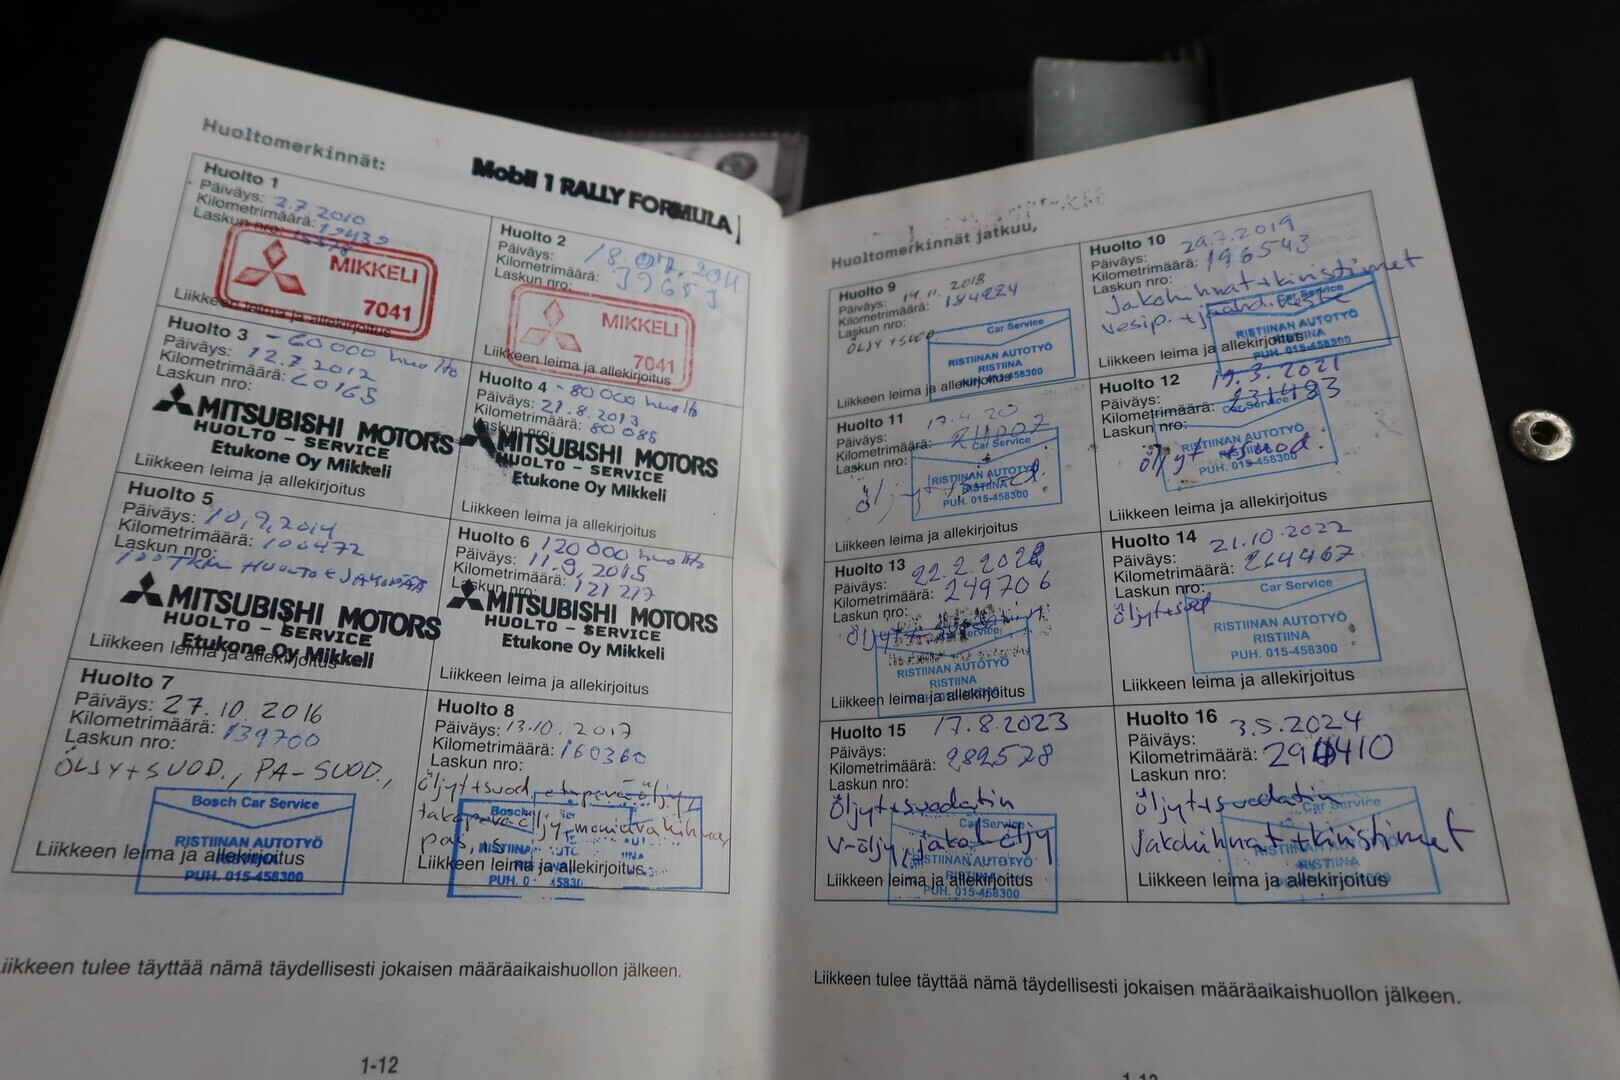 Huoltomerkinnät:
Mobil 1 RALLY FORMULA
Huolto 1
Päiväys: 2.7.2010
Kilometrimäärä: 19439
Laskun nro:
MIKKELI
7041
Liikkeen leima ja allekirjoitus
Huolto 2
Päiväys: 18.07.2011
Kilometrimäärä:
Laskun nro:
MIKKELI
7041
Liikkeen leima ja allekirjoitus
Huolto 3 - 60000 huolto
Päiväys: 12.7.2012
Kilometrimäärä: 60165
Laskun nro:
MITSUBISHI MOTORS
HUOLTO - SERVICE
Etukone Oy Mikkeli
Liikkeen leima ja allekirjoitus
Huolto 4 - 80000 huolto
Päiväys: 21.8.2013
Kilometrimäärä: 80085
Laskun nro:
MITSUBISHI MOTORS
HUOLTO - SERVICE
Etukone Oy Mikkeli
Liikkeen leima ja allekirjoitus
Huolto 5
Päiväys: 10.9.2014
Kilometrimäärä: 100472
Laskun nro:
HUOLTO
MITSUBISHI MOTORS
HUOLTO - SERVICE
Etukone Oy Mikkeli
Liikkeen leima ja allekirjoitus
Huolto 6 120000 huolto
Päiväys: 11.9.2015
Kilometrimäärä: 121217
Laskun nro:
MITSUBISHI MOTORS
HUOLTO - SERVICE
Etukone Oy Mikkeli
Liikkeen leima ja allekirjoitus
Huolto 7
Päiväys: 27.10.2016
Kilometrimäärä: 139700
Laskun nro:
ÖLJY+SUOD., PA-SUOD.,
Bosch Car Service
RISTIINAN AUTOTYÖ
RISTIINA
PUH. 015-458300
Liikkeen leima ja allekirjoitus
Huolto 8
Päiväys: 13.10.2017
Kilometrimäärä: 160360
Laskun nro:
öljyt+suod, etuperäöljy,
takaperäöljy, moniurahihna
Bosch
Liikkeen leima ja allekirjoitus
Liikkeen tulee täyttää nämä täydellisesti jokaisen määräaikaishuollon jälkeen.
1-12
Huoltomerkinnät jatkuu,
Huolto 9
Päiväys: 19.11.2018
Kilometrimäärä: 184224
Laskun nro:
ÖLJY+SUOD.
Car Service
RISTIINAN AUTOTYÖ
RISTIINA
PUH. 015-458300
Liikkeen leima ja allekirjoitus
Huolto 10
Päiväys: 29.7.2019
Kilometrimäärä: 196543
Laskun nro:
Jakohihnat+kiristimet
vesip.+jäähd.neste
Car Service
RISTIINAN AUTOTYÖ
RISTIINA
PUH. 015-458300
Liikkeen leima ja allekirjoitus
Huolto 11
Päiväys: 17.4.20
Kilometrimäärä: 211007
Laskun nro:
Car Service
RISTIINAN AUTOTYÖ
RISTIINA
PUH. 015-458300
Liikkeen leima ja allekirjoitus
Huolto 12
Päiväys: 19.3.2021
Kilometrimäärä: 231483
Laskun nro:
öljyt+suod.
Car Service
RISTIINAN AUTOTYÖ
RISTIINA
PUH. 015-458300
Liikkeen leima ja allekirjoitus
Huolto 13
Päiväys: 22.2.2022
Kilometrimäärä: 249706
Laskun nro:
öljyt+suodatin
Car Service
RISTIINAN AUTOTYÖ
RISTIINA
Liikkeen leima ja allekirjoitus
Huolto 14
Päiväys: 21.10.2022
Kilometrimäärä: 264467
Laskun nro:
öljyt+suod
Car Service
RISTIINAN AUTOTYÖ
RISTIINA
PUH. 015-458300
Liikkeen leima ja allekirjoitus
Huolto 15
Päiväys: 17.8.2023
Kilometrimäärä: 282578
Laskun nro:
öljyt+suodatin
v-öljy, jakol.öljy
Car Service
RISTIINAN AUTOTYÖ
RISTIINA
PUH. 015-458300
Liikkeen leima ja allekirjoitus
Huolto 16
Päiväys: 3.5.2024
Kilometrimäärä: 294410
Laskun nro:
öljyt+suodatin
Jakohihnat+kiristimet
Car Service
RISTIINAN AUTOTYÖ
RISTIINA
PUH. 015-458300
Liikkeen leima ja allekirjoitus
Liikkeen tulee täyttää nämä täydellisesti jokaisen määräaikaishuollon jälkeen.